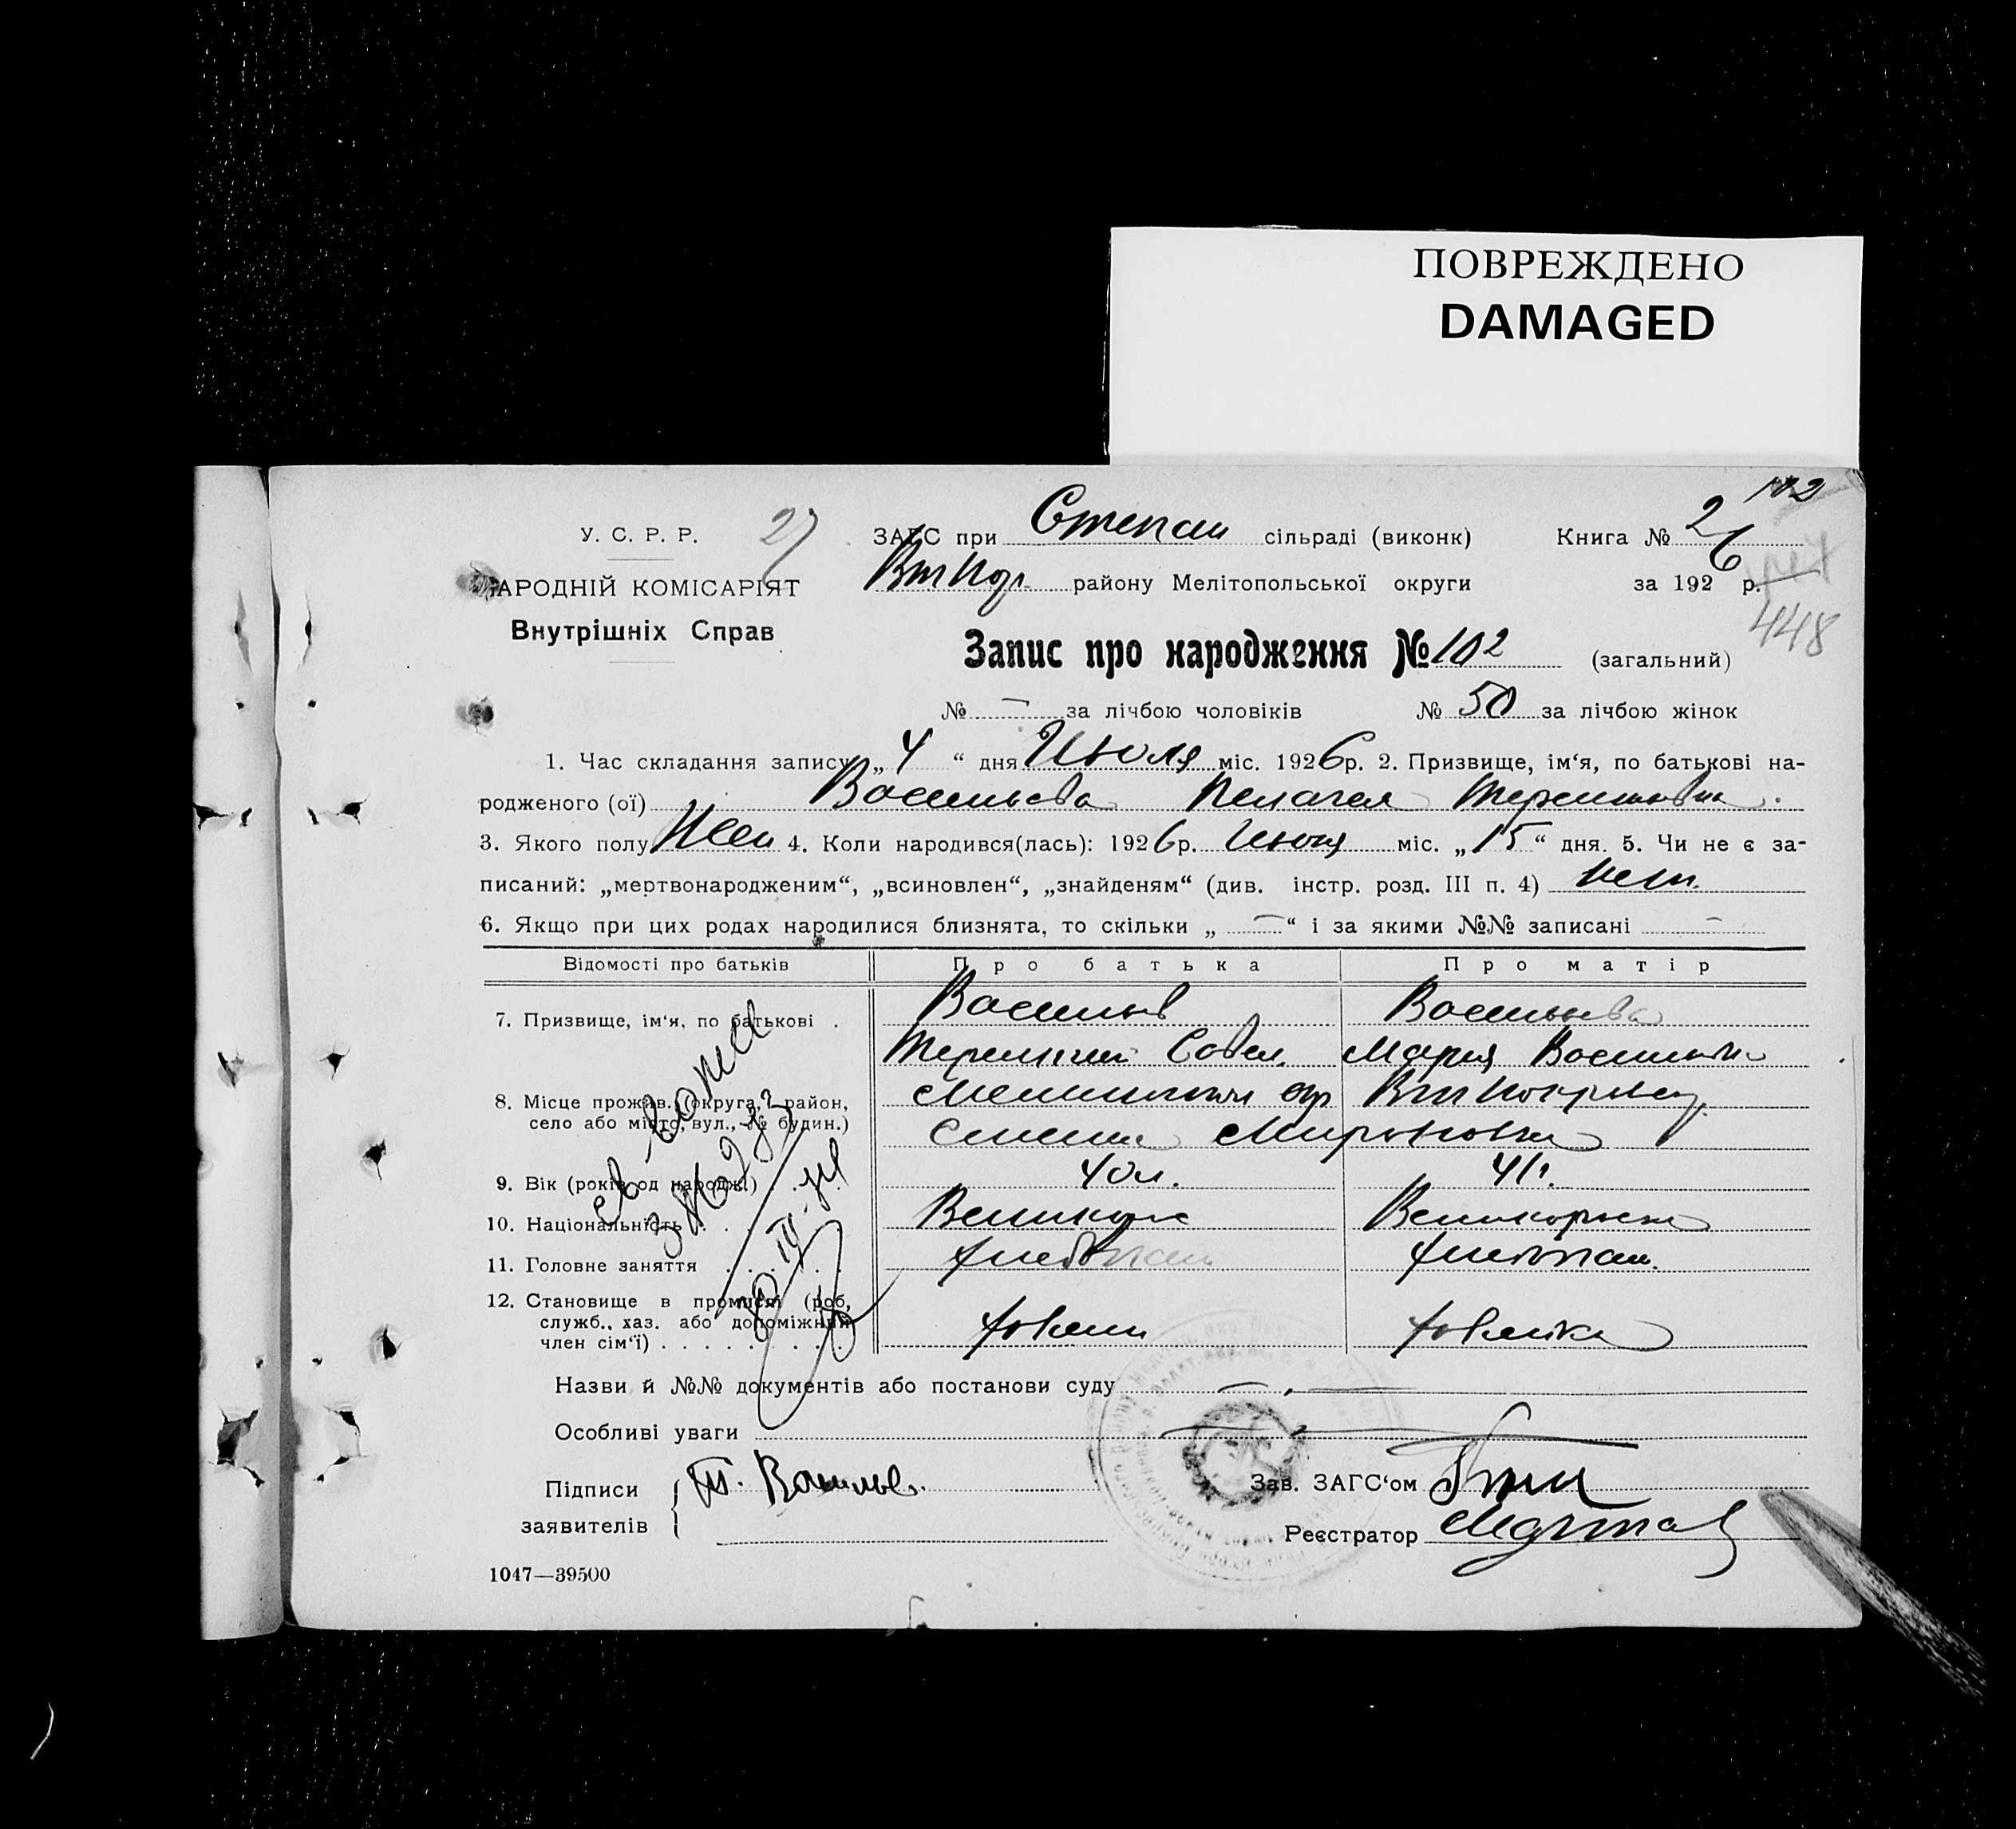 ПОВРЕЖДЕНО
DAMAGED
102
У. С. Р. Р. 27 ЗАГС при Степан сільраді (виконк) Книга № 2
НАРОДНІЙ КОМІСАРІЯТ районy Мелітопольської округи за 1926 р.
448
Внутрішніх Справ
Запис про народження № 102 (загальний)
№ — за лічбою чоловіків № 50 за лічбою жінок
1. Час складання запису „4“ дня Июля міс. 1926 р. 2. Призвище, ім‘я, по батькові на-
родженого (ої) Васильева Пелагея Терентьевна.
3. Якого полу Жен 4. Коли народився(лась): 1926 р. міс. „15“ дня. 5. Чи не є за-
писаний: „мертвонародженим“, „всиновлен“, „знайденям“ (див. інстр. розд. III п. 4) нет.
6. Якщо при цих родах народилися близнята, то скільки „ — “ і за якими №№ записані —
Відомості про батьків Про батька Про матір
7. Призвище, ім‘я, по батькові . Васильев Васильева
Терентий Савел. Мария
8. Місце прожив. (округа, район,
село або місто, вул., № будин.)
9. Вік (років од народж.) . . . 40 л. 41 г.
10. Національність . . . . Великорос
11. Головне заняття . . . . . хлебопаш хлебопаш.
12. Становище в промислі (роб,
служб., хаз. або допоміжний
член сім‘ї) . . . . . . . . . хозяин хозяйка
Назви й №№ документів або постанови суду —
Особливі уваги —
Підписи Т. Васильев.
заявителів
Зав. ЗАГС‘ом
Реєстратор
1047—39500